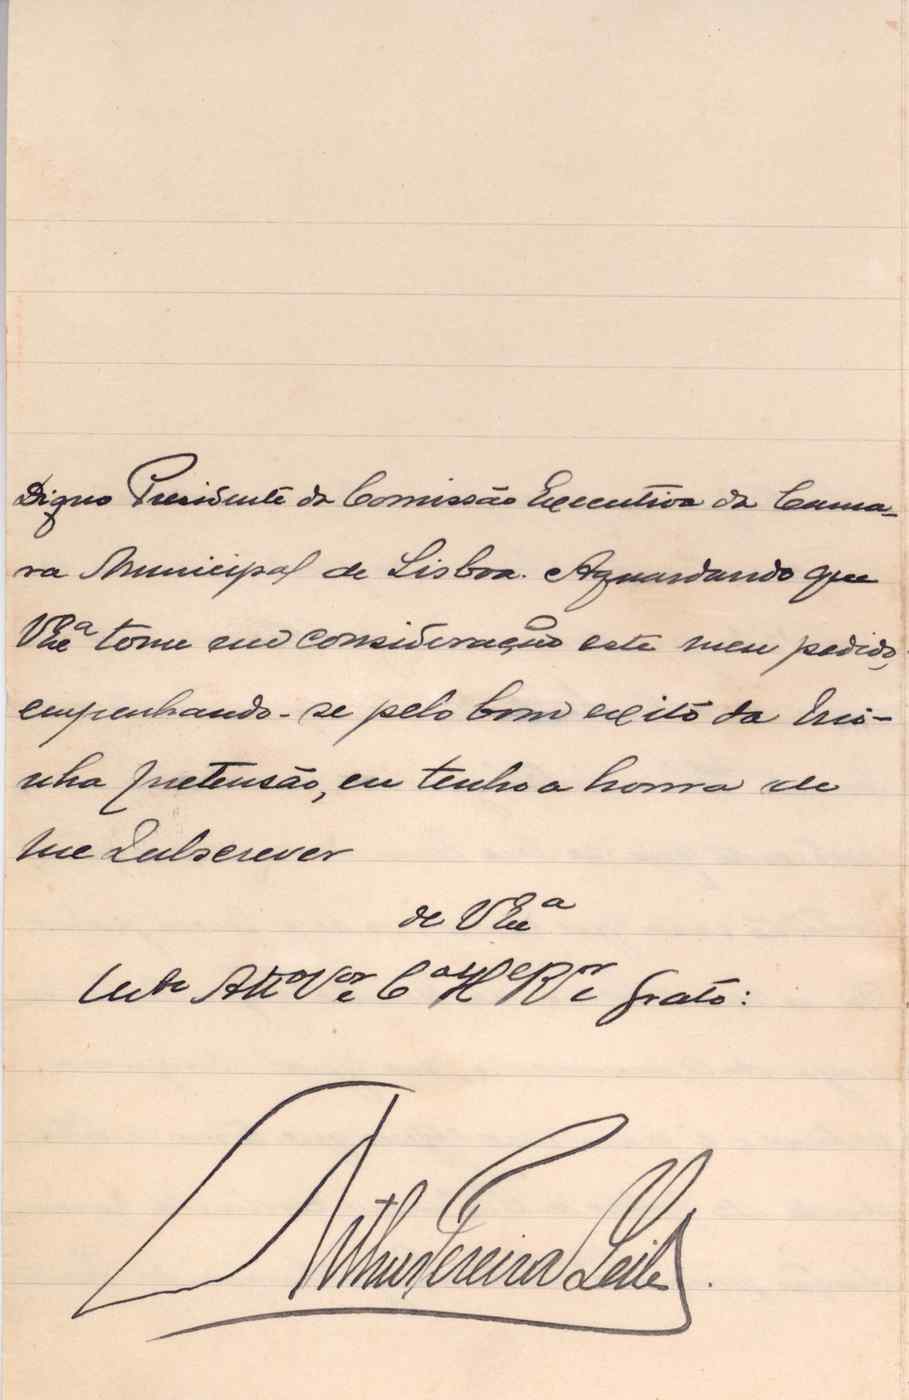 Digno Presidente da Comissão Executiva da Cama-
ra Municipal de Lisboa. Aguardando que
VExª tome em consideração este meu pedido,
empenhando-se pelo bom exito da mi-
nha pretensão, eu tenho a honra de
me Subscrever
de VExª
Attº Vor e grato:
Arthur Pereira Leite.